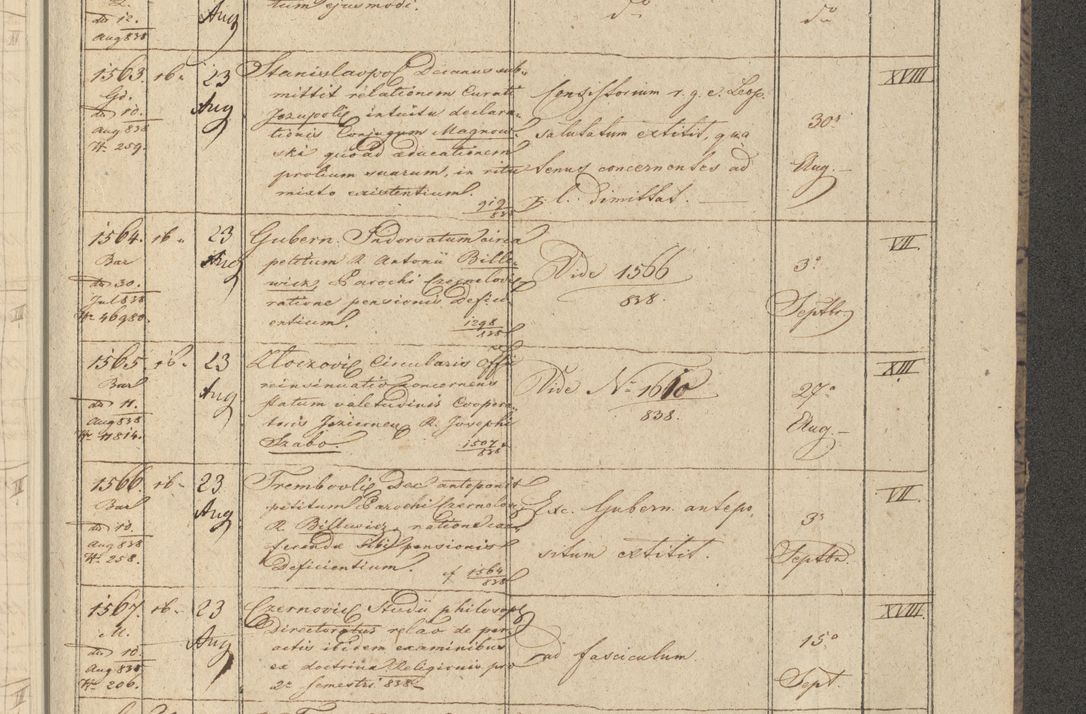 dto 12.
Aug 838
Aug
tum ejusmodi.
do
do
1563. rb.
Gd.
dto 10.
Aug 838
N. 259.
23
Aug
Stanislaopol. Decanus sub-
mittit relationem Curati
Jezupolis intuitu declara-
tionis Conjugum Magnow-
ski quoad educationem
prolium suarum, in ritu
mixto existentium.
919/838
Consistorium r. g. c. Leop.
salutatum extitit, qua
tenus concernentes ad
p. l. dimittat.
30a
Aug.
XVIII
1564. rb.
Bar
dto 30.
Jul 838
N. 46980.
23
Aug
Gubern. Indorsatum circa
petitum R. Antonii Bile-
wicz Parochi Czernelov.
ratione pensionis defici-
entium.
1298/838
Vide 1566/838.
3a
Septbr
VII
1565. rb.
Bar
dto 11.
Aug 838
N. 11814.
23
Aug
Zloczov. Circularis Offi
reinsinuatio concernens
statum valetudinis Coopera-
toris Jeziernea R. Josephi
Szabo.
1507/838
Vide No 1610/838.
27a
Aug
XIII
1566. rb.
Bar
dto 10.
Aug 838
N. 258.
23
Aug
Trembovl. Dec anteponit
petitum Parochi Czernelov
R. Bilewicz, ratione con-
ferenda sibi pensionis
Deficientium.
cf 1564/838
Exc. Gubern. antepo,
situm extitit.
3a
Septbr.
VII
1567. rb.
M.
dto 10
Aug 838
N. 206.
23
Aug
Czernovic. Studii philosoph
directoratus relao de per-
actis ibidem examinibus
ex doctrina Religionis pro
2o Semestri 838
ad fasciculum.
15a
Sept.
XVIII